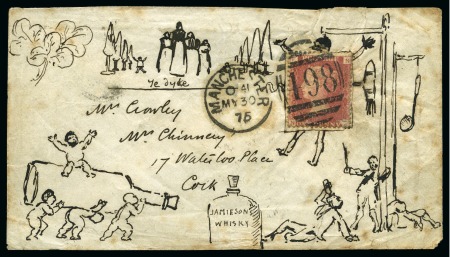 Ye dyke
MANCHESTER
O 41
MY 30
75
498
Mr Crowley
Mrs Chinnery
17 Waterloo Place
Cork
JAMIESON
WHISKY